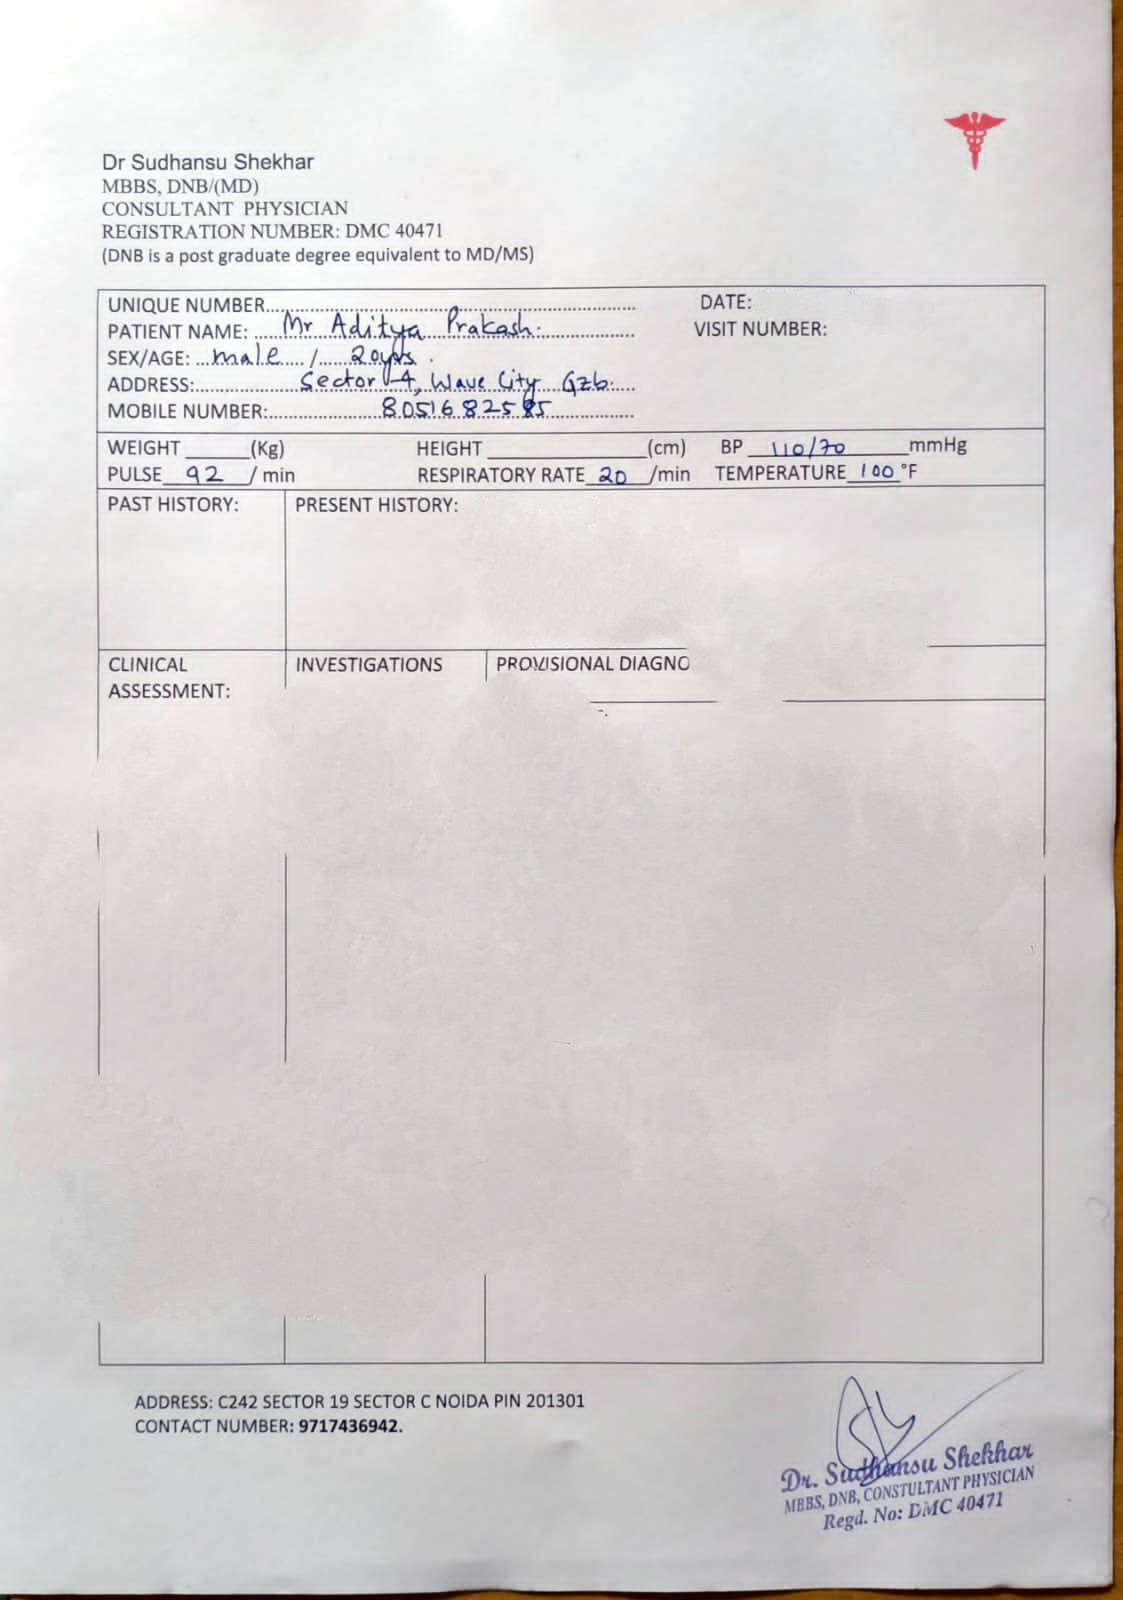 Dr Sudhansu Shekhar
MBBS, DNB/(MD)
CONSULTANT PHYSICIAN
REGISTRATION NUMBER: DMC 40471
(DNB is a post graduate degree equivalent to MD/MS)
UNIQUE NUMBER.......... DATE:
PATIENT NAME: Mr Aditya Prakash. VISIT NUMBER:
SEX/AGE: male / 20yrs.
ADDRESS: Sector 4, Wave City Gzb.
MOBILE NUMBER:
WEIGHT ______ (Kg) HEIGHT ______ (cm) BP 110/70 mmHg
PULSE 92 / min RESPIRATORY RATE 20 /min TEMPERATURE 100 °F
PAST HISTORY: PRESENT HISTORY:
CLINICAL ASSESSMENT: INVESTIGATIONS PROVISIONAL DIAGNO
ADDRESS: C242 SECTOR 19 SECTOR C NOIDA PIN 201301
CONTACT NUMBER: 9717436942.
Dr. Sudhansu Shekhar
MBBS, DNB, CONSTULTANT PHYSICIAN
Regd. No: DMC 40471